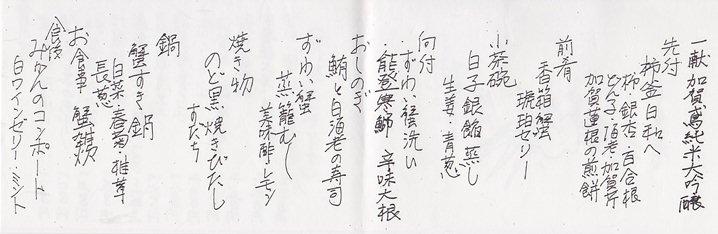 一献 加賀鳶純米大吟醸
先付
柿釜 日和へ
柿・銀杏・百合根
とんぶり・占地・加賀芹
加賀蓮根の煎餅
前肴
香箱蟹
琥珀ゼリー
小茶碗
白子銀餡蒸し
生姜・青葱
向付
ずわい蟹洗い
能登寒鰤 辛味大根
おしのぎ
鮪と白海老の寿司
ずわい蟹
蒸籠むし
美味酢レモン
焼き物
のど黒焼きびたし
すだち
鍋
蟹すき鍋
白菜・春菊・椎茸
長葱
お食事 蟹雑炊
食後
みかんのコンポート
白ワインゼリー・ミント